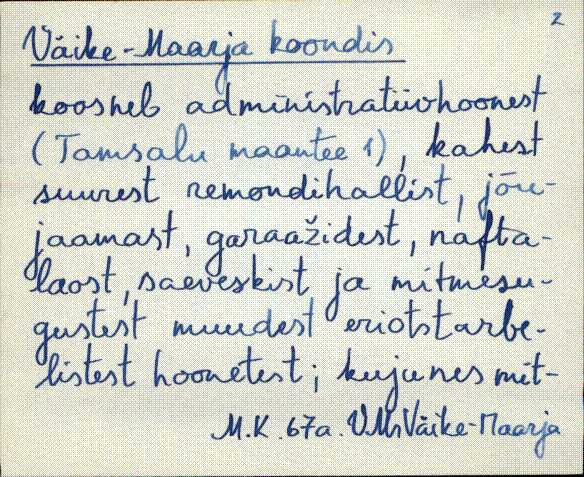 2
Väike-Maarja koondis
koosneb administratiivhoonest
(Tamsalu maantee 1), kahest
suurest remondihallist, jõu-
jaamast, garaažidest, nafta-
laost, saeveskist ja mitmesu-
gustest muudest eriotstarbe-
listest hoonetest; kujunes mit-
M.K. 67a. VMr Väike-Maarja